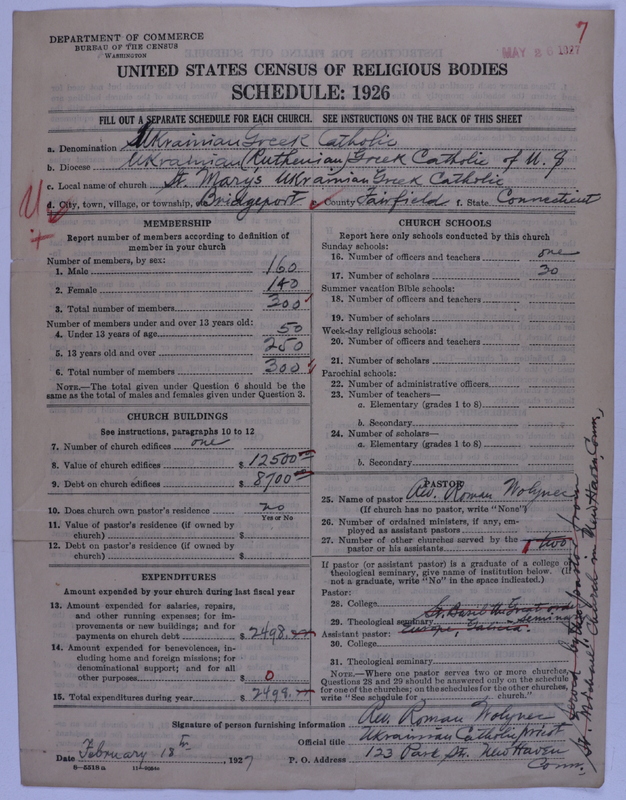 7
DEPARTMENT OF COMMERCE
BUREAU OF THE CENSUS
WASHINGTON
MAY 2 1927
UNITED STATES CENSUS OF RELIGIOUS BODIES
SCHEDULE: 1926
FILL OUT A SEPARATE SCHEDULE FOR EACH CHURCH. SEE INSTRUCTIONS ON THE BACK OF THIS SHEET
a. Denomination Ukrainian Greek Catholic
b. Diocese Ukrainian (Ruthenian) Greek Catholic of U. S
c. Local name of church St. Mary's Ukrainian Greek Catholic
d. City, town, village, or township, Bridgeport e. County Fairfield f. State Connecticut
MEMBERSHIP
Report number of members according to definition of
member in your church
Number of members, by sex:
1. Male 160
2. Female 140
3. Total number of members 300
Number of members under and over 13 years old:
4. Under 13 years of age 50
5. 13 years old and over 250
6. Total number of members 300
NOTE.—The total given under Question 6 should be the
same as the total of males and females given under Question 3.
CHURCH BUILDINGS
See instructions, paragraphs 10 to 12
7. Number of church edifices one
8. Value of church edifices $ 12500
9. Debt on church edifices $ 8700
10. Does church own pastor's residence no
Yes or No
11. Value of pastor's residence (if owned by
church) $
12. Debt on pastor's residence (if owned by
church) $
EXPENDITURES
Amount expended by your church during last fiscal year
13. Amount expended for salaries, repairs,
and other running expenses; for im-
provements or new buildings; and for
payments on church debt $ 2498.
14. Amount expended for benevolences, in-
cluding home and foreign missions; for
denominational support; and for all
other purposes $ 0
15. Total expenditures during year $ 2498.
CHURCH SCHOOLS
Report here only schools conducted by this church
Sunday schools:
16. Number of officers and teachers one
17. Number of scholars 30
Summer vacation Bible schools:
18. Number of officers and teachers
19. Number of scholars
Week-day religious schools:
20. Number of officers and teachers
21. Number of scholars
Parochial schools:
22. Number of administrative officers
23. Number of teachers—
a. Elementary (grades 1 to 8)
b. Secondary
24. Number of scholars—
a. Elementary (grades 1 to 8)
b. Secondary
PASTOR
25. Name of pastor Rev. Roman Wolynec
(If church has no pastor, write "None")
26. Number of ordained ministers, if any, em-
ployed as assistant pastors
27. Number of other churches served by the
pastor or his assistants two
If pastor (or assistant pastor) is a graduate of a college or
theological seminary, give name of institution below. (If
not a graduate, write "No" in the space indicated.)
Pastor:
28. College
St. Basil the Great
29. Theological seminary seminary
Europe, Galicia.
Assistant pastor:
30. College
31. Theological seminary
NOTE.—Where one pastor serves two or more churches,
Questions 28 and 29 should be answered only on the schedule
for one of the churches; on the schedules for the other churches,
write "See schedule for church."
served by the pastor from
St. Michael's Church in New Haven, Conn.
Signature of person furnishing information Rev. Roman Wolynec
Official title Ukrainian Catholic priest
Date February 18th, 1927 P. O. Address 123 Park St. New Haven
Conn.
8—5518a